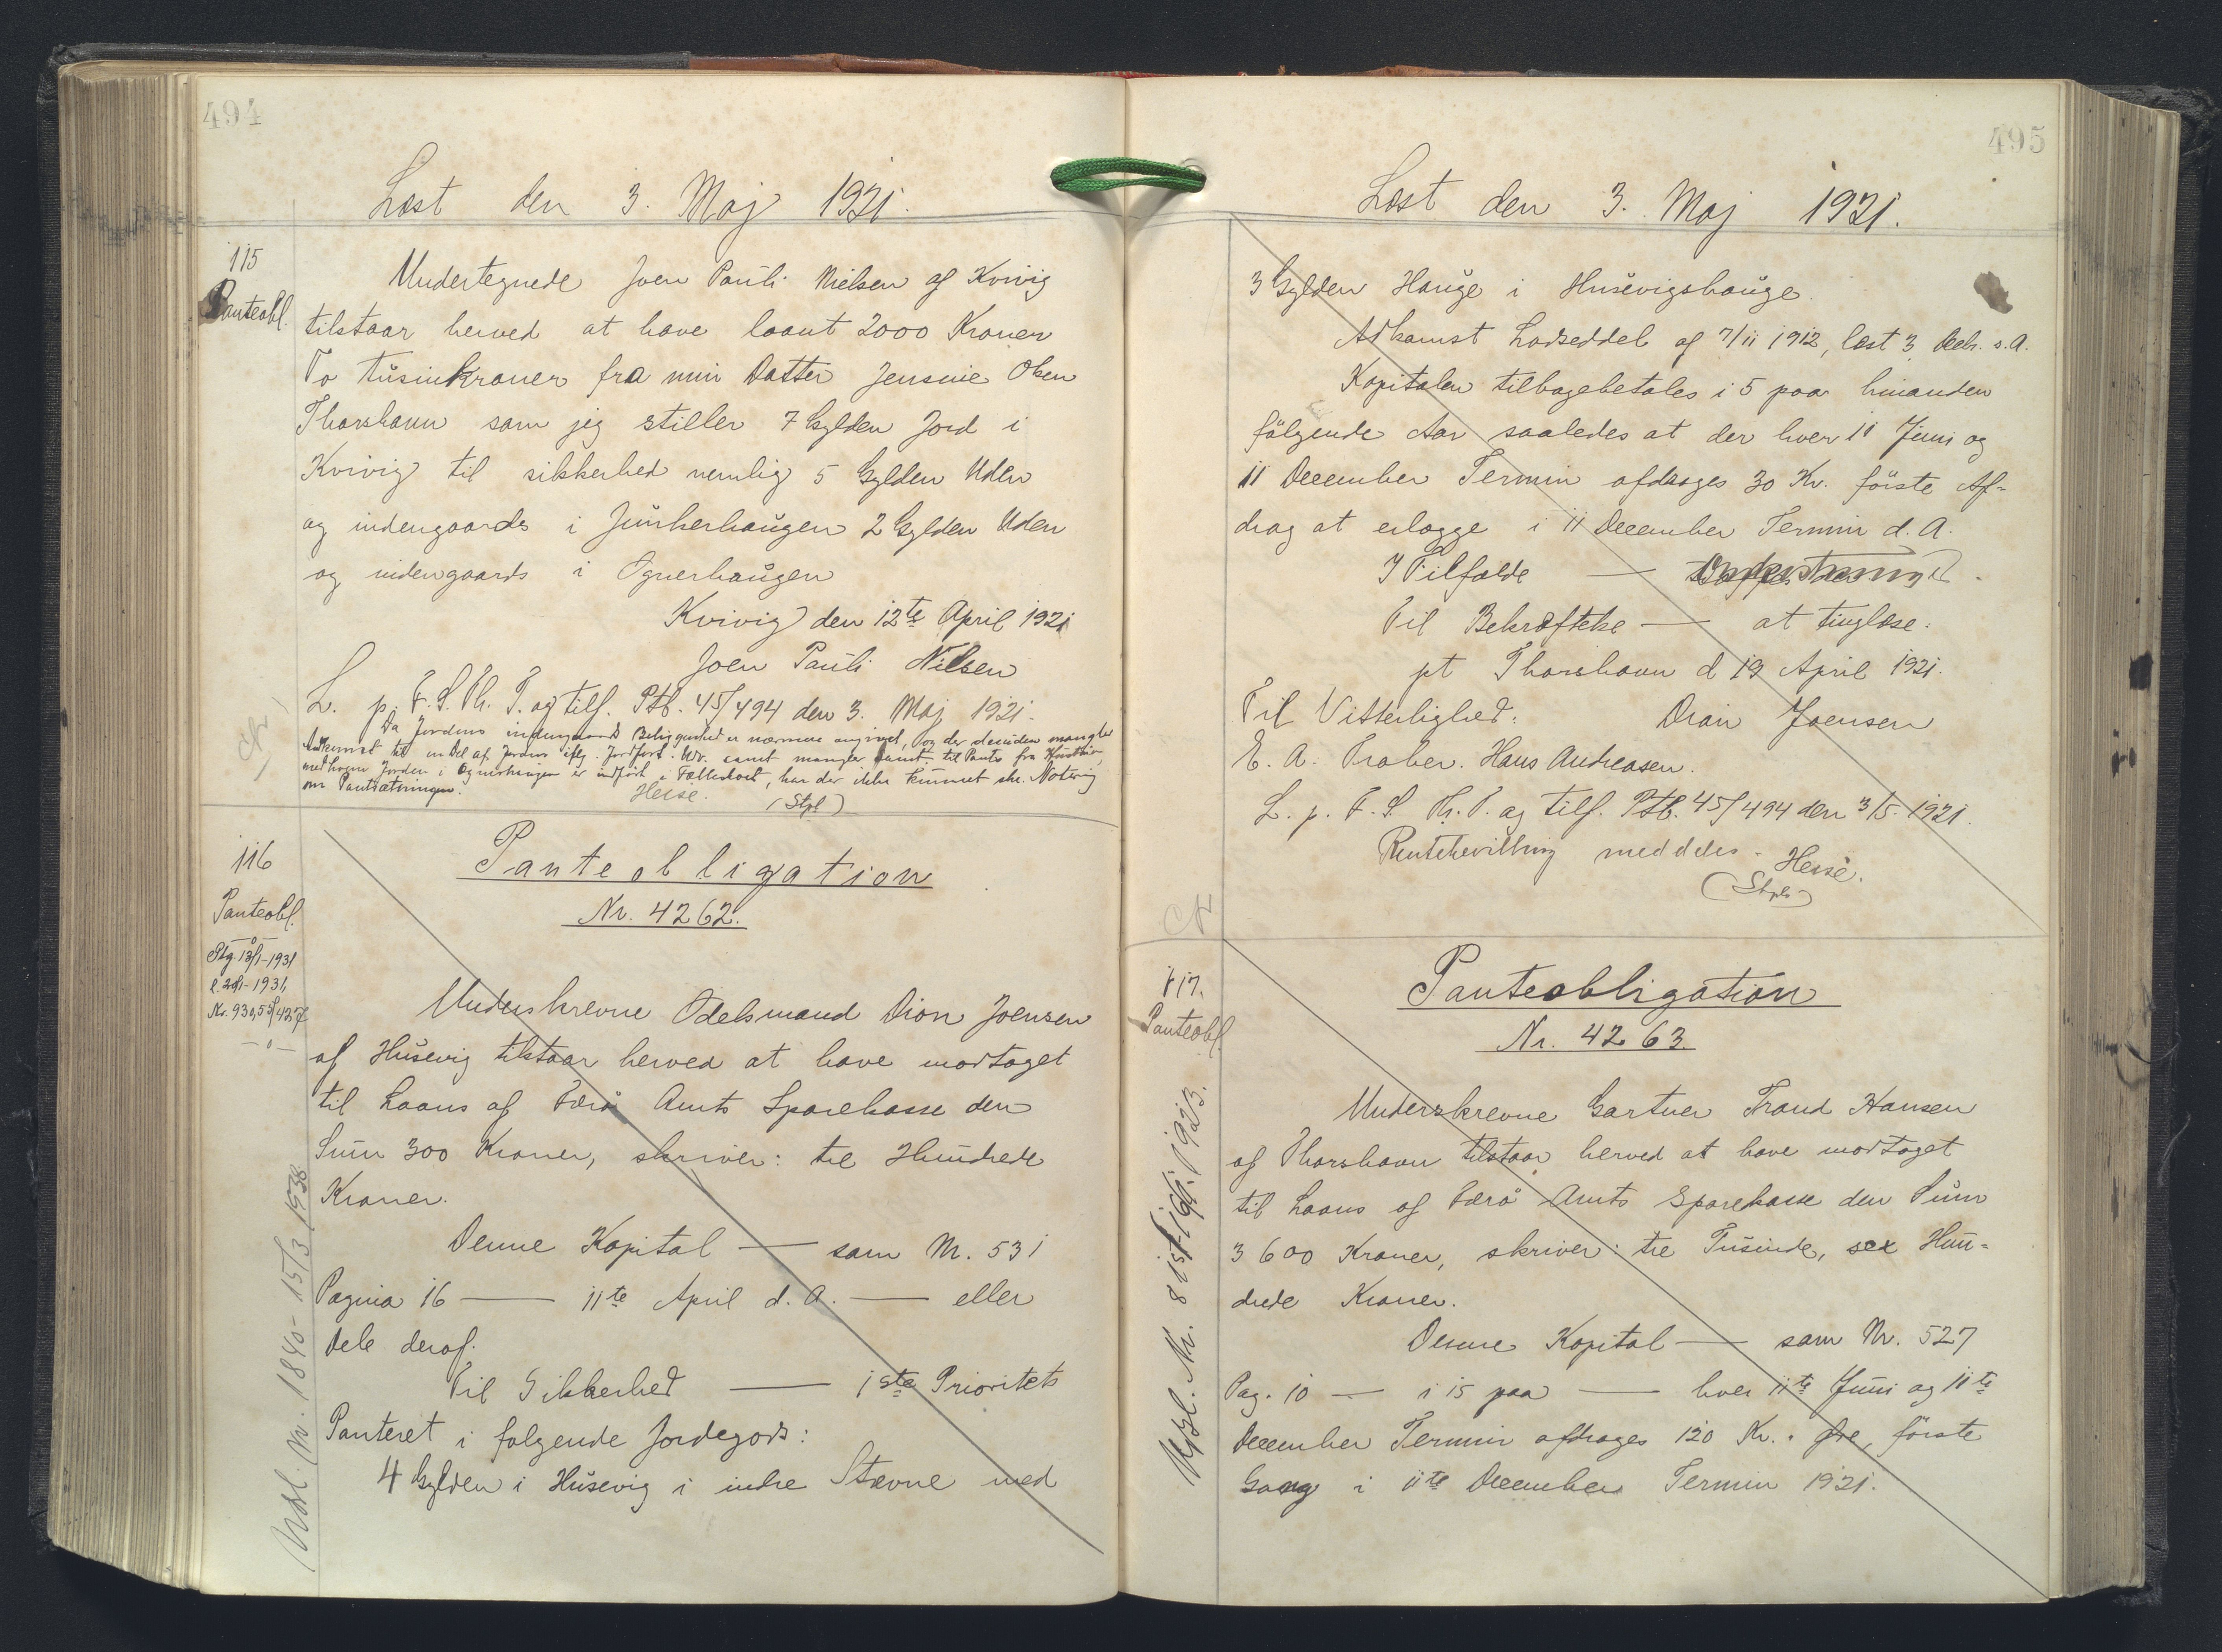 494
Læst den 3. Maj 1921.
115
Panteobl.
Undertegnede Joen Pauli Nielsen af Kvivig
tilstaar herved at have laant 2000 Kroner
To tusinkroner fra min Datter Jensine Olsen
Thorshavn som jeg stiller 7 Gylden Jord i
Kvivig til sikkerhed nemlig 5 Gylden Uden
og indengaards i Junkerhaugen 2 Gylden Uden
og indengaards i Ognerhaugen
Kvivig den 12te April 1921
Joen Pauli Nielsen
L. p. F. S. Th. T. og tilf. Ptb. 45/494 den 3. Maj 1921.
Da Jordens indengaards Beliggenhed er nærmere angivet, og der desuden mangler
Adkomst til en Del af Jorden iflg. Jordfort. Udv. samt mangler Samt. til Pants fra
med hvem Jorden i Ognerhaugen er indført i Fælleslod, har der ikke kunnet ske Notering
om Pantsætningen.
Hesse.
(Stpl)
116
Panteobl.
Ptg. 13/1-1931
l. 20/1-1931,
Nr. 930, 53/427
Udsl. Nr. 1840- 15/3 1938
Panteobligation
Nr. 4262.
Underskrevne Odelsmand Dion Joensen
af Husevig tilstaar herved at have modtaget
til Laans af Færø Amts Sparekasse den
Sum 300 Kroner, skriver: tre Hundrede
Kroner.
Denne Kapital — som Nr. 531
Pagina 16 — 11te April d. A. — eller
Dele deraf.
Til Sikkerhed — 1ste Prioritets
Panteret i følgende Jordegods:
4 Gylden i Husevig i indre Stævne med
495
Læst den 3. Maj 1921.
3 Gylden Hauge i Husevigshauge.
Adkomst Lodseddel af 7/11 1912, læst 3 Decb. s. A.
Kapitalen tilbagebetales i 5 paa hinanden
følgende Aar saaledes at der hver 11 Juni og
11 December Termin afdrages 30 Kr. første Af-
drag at erlægge i 11 December Termin d. A.
I Tilfælde —
Til Bekræftelse — at tinglæse.
pt Thorshavn d 19 April 1921.
Til Vitterlighed: Dion Joensen
E. A. Fraber. Hans Andreasen.
L. p. F. S. Th. T. og tilf. Ptb. 45/494 den 3/5. 1921.
Rentebevilling meddeles. Hesse.
(Stpl.)
117.
Panteobl.
Panteobligation
Nr. 4263
Underskrevne Gartner Trond Hansen
af Thorshavn tilstaar herved at have modtaget
til Laans af Færø Amts Sparekasse den Sum
3600 Kroner, skriver: tre Tusinde, sex Hun-
drede Kroner.
Denne Kapital — som Nr. 527
Pag. 10 — i 15 paa — hver 11te Juni og 11te
December Termin afdrages 120 Kr. " Øre, første
Gang i 11te December Termin 1921.